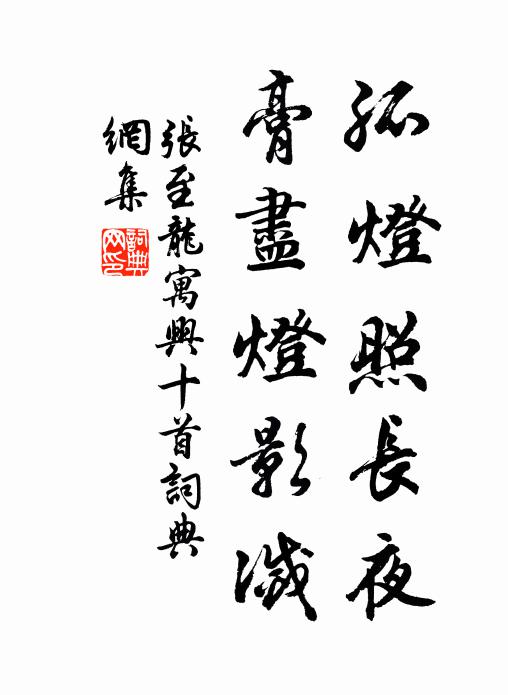 孤燈照長夜
膏盡燈影滅
張至龍寓興十首詞典
網集
詞典網印